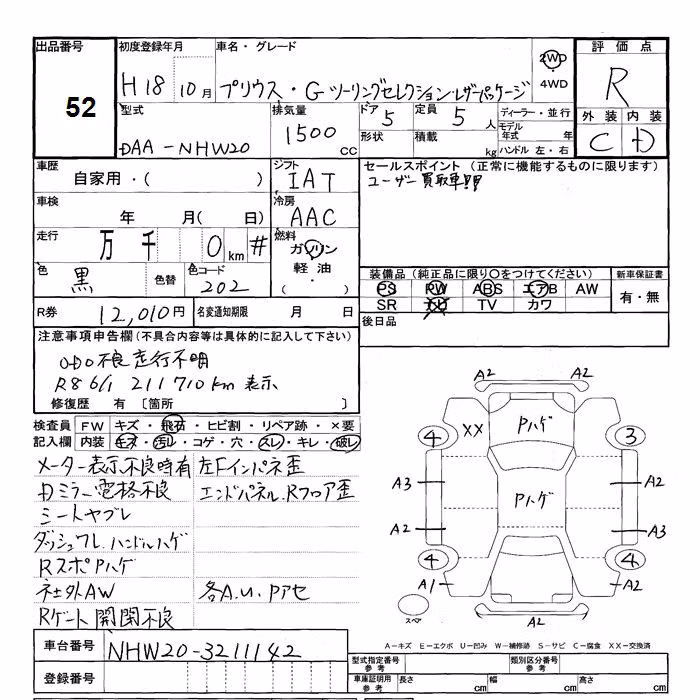 出品番号 初度登録年月 車名・グレード 2WD 評価点
52 H18 10月 プリウス・Gツーリングセレクション・レザーパッケージ ・4WD R
型式 排気量 ドア 5 定員 5人 ディーラー・並行 外装 内装
DAA-NHW20 1500cc 形状 積載 kg モデル年式 年 C D
ハンドル 左・右
車歴 シフト セールスポイント(正常に機能するものに限ります)
自家用・( ) IAT ユーザー買取車!!
車検 冷房
年 月( 日) AAC
走行 燃料
万 千 0 km # ガソリン
色 色替 色コード 軽油 装備品(純正品に限り○をつけてください) 新車保証書
黒 202 ( ・ ) PS PW ABS エアB AW 有・無
SR ナビ TV カワ
R券 12,010円 名変通知期限 月 日 後日品
注意事項申告欄(不具合内容等は具体的に記入して下さい)
ODO不良走行不明
R8 6/1 211710km 表示
修復歴 有〔箇所 〕
検査員 FW キズ・飛石・ヒビ割・リペア跡・×要
記入欄 内装 キズ・汚レ・コゲ・穴・スレ・キレ・破レ
メーター表示不良時有 左Fインパネ歪
Dミラー電格不良 エンドパネル.Rフロア歪
シートヤブレ
ダッシュワレ.ハンドルハゲ
RスポPハゲ
社外AW 各A.U.Pアセ
Rゲート開閉不良
A2 A2
XX Pハゲ
4 3
A3 Pハゲ A2
A2 A3
4 4
A1 A2
スペア A2
A-キズ E-エクボ U-凹み W-補修跡 S-サビ C-腐食 XX-交換済
車台番号 NHW20-3211142 型式指定番号 参考 類別区分番号 参考
登録番号 車庫証明用 参考 長さ cm 幅 cm 高さ cm